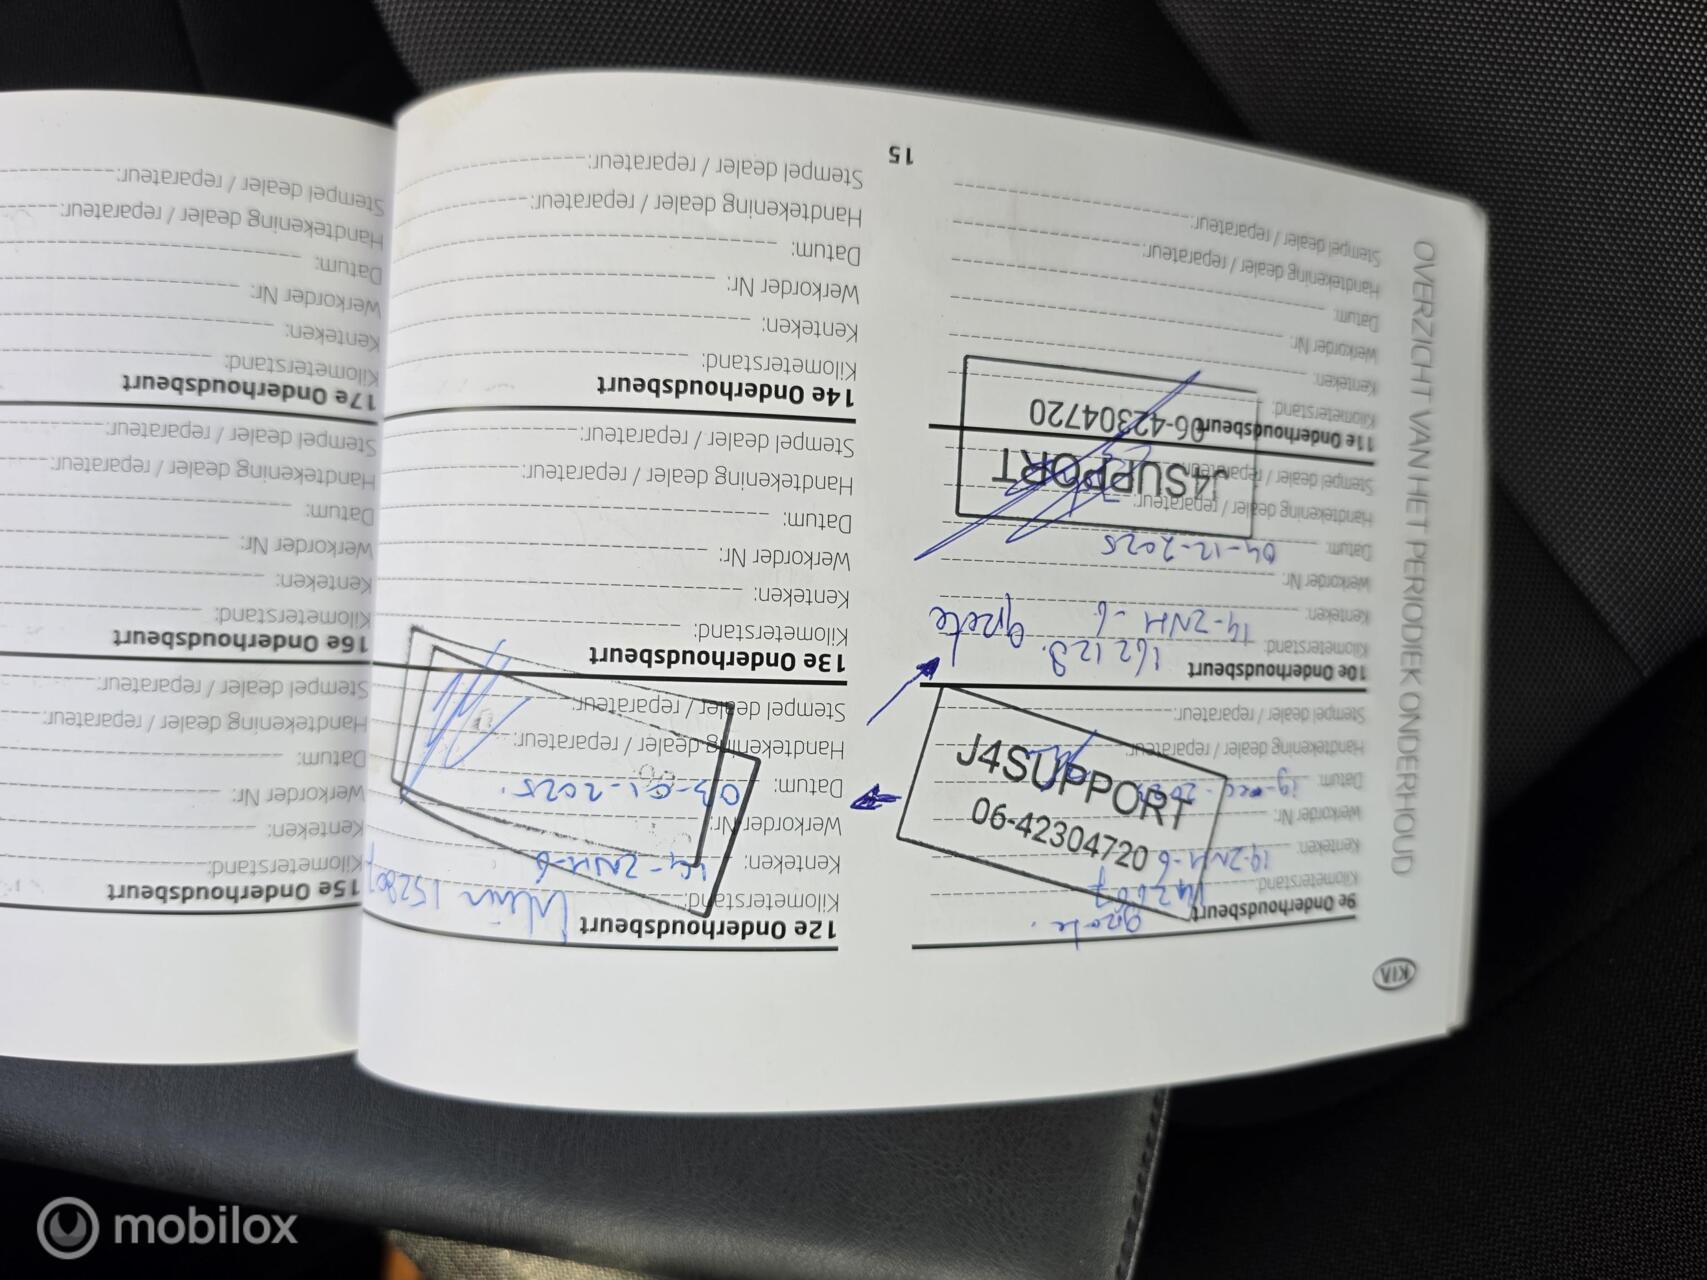 KIA
OVERZICHT VAN HET PERIODIEK ONDERHOUD
9e Onderhoudsbeurt
grote.
Kilometerstand:
Kenteken:
Werkorder Nr:
Datum:
Handtekening dealer / reparateur:
Stempel dealer / reparateur:
J4SUPPORT
06-42304720
10e Onderhoudsbeurt
Kilometerstand: 162123. grote
Kenteken: 14-2NH-6
Werkorder Nr:
Datum: 04-12-2025
Handtekening dealer / reparateur:
Stempel dealer / reparateur:
J4SUPPORT
06-42304720
11e Onderhoudsbeurt
Kilometerstand:
Kenteken:
Werkorder Nr:
Datum:
Handtekening dealer / reparateur:
Stempel dealer / reparateur:
15
12e Onderhoudsbeurt
Kilometerstand:
Kenteken: 14-2NH-6
Werkorder Nr:
Datum: 03-01-2025.
Handtekening dealer / reparateur:
Stempel dealer / reparateur:
13e Onderhoudsbeurt
Kilometerstand:
Kenteken:
Werkorder Nr:
Datum:
Handtekening dealer / reparateur:
Stempel dealer / reparateur:
14e Onderhoudsbeurt
Kilometerstand:
Kenteken:
Werkorder Nr:
Datum:
Handtekening dealer / reparateur:
Stempel dealer / reparateur:
15e Onderhoudsbeurt
Kilometerstand:
Kenteken:
Werkorder Nr:
Datum:
Handtekening dealer / reparateur:
Stempel dealer / reparateur:
16e Onderhoudsbeurt
Kilometerstand:
Kenteken:
Werkorder Nr:
Datum:
Handtekening dealer / reparateur:
Stempel dealer / reparateur:
17e Onderhoudsbeurt
Kilometerstand:
Kenteken:
Werkorder Nr:
Datum:
Handtekening dealer / reparateur:
Stempel dealer / reparateur:
mobilox